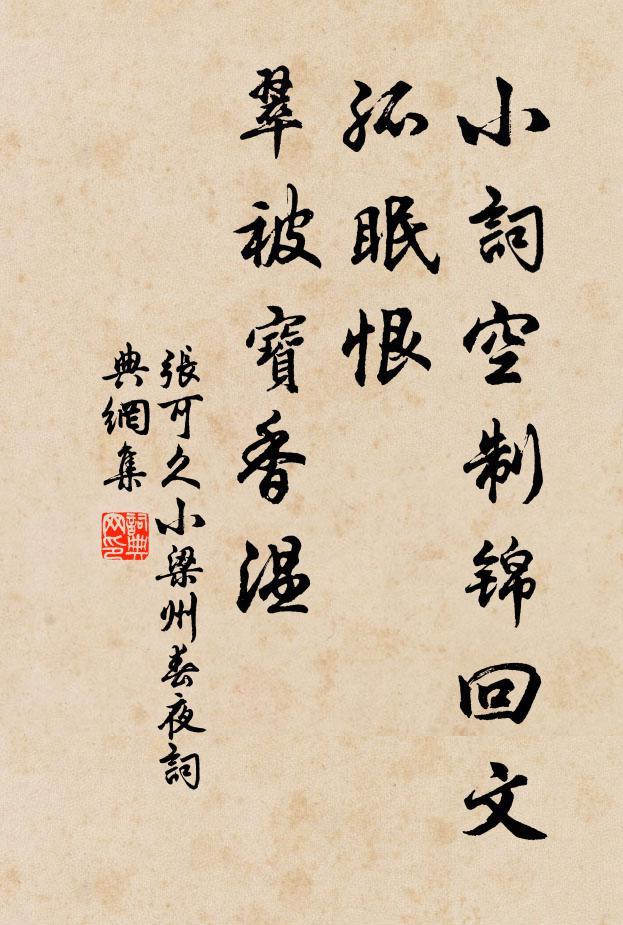 小詞空制锦回文
孤眠恨
翠被寶香温
張可久小梁州春夜詞
典網集
詞典网印